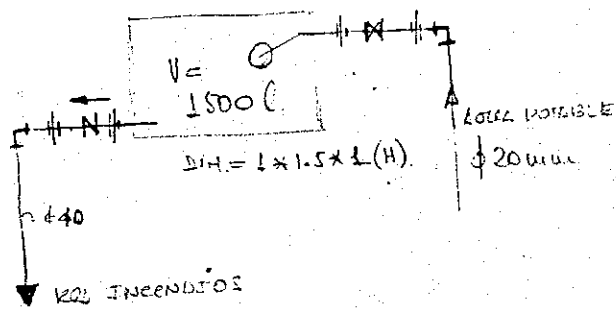 V=
1500 l.
DIM. = 1 x 1.5 x 1 (H).
AGUA POTABLE
ϕ 20 mm.
ϕ40
RED INCENDIOS